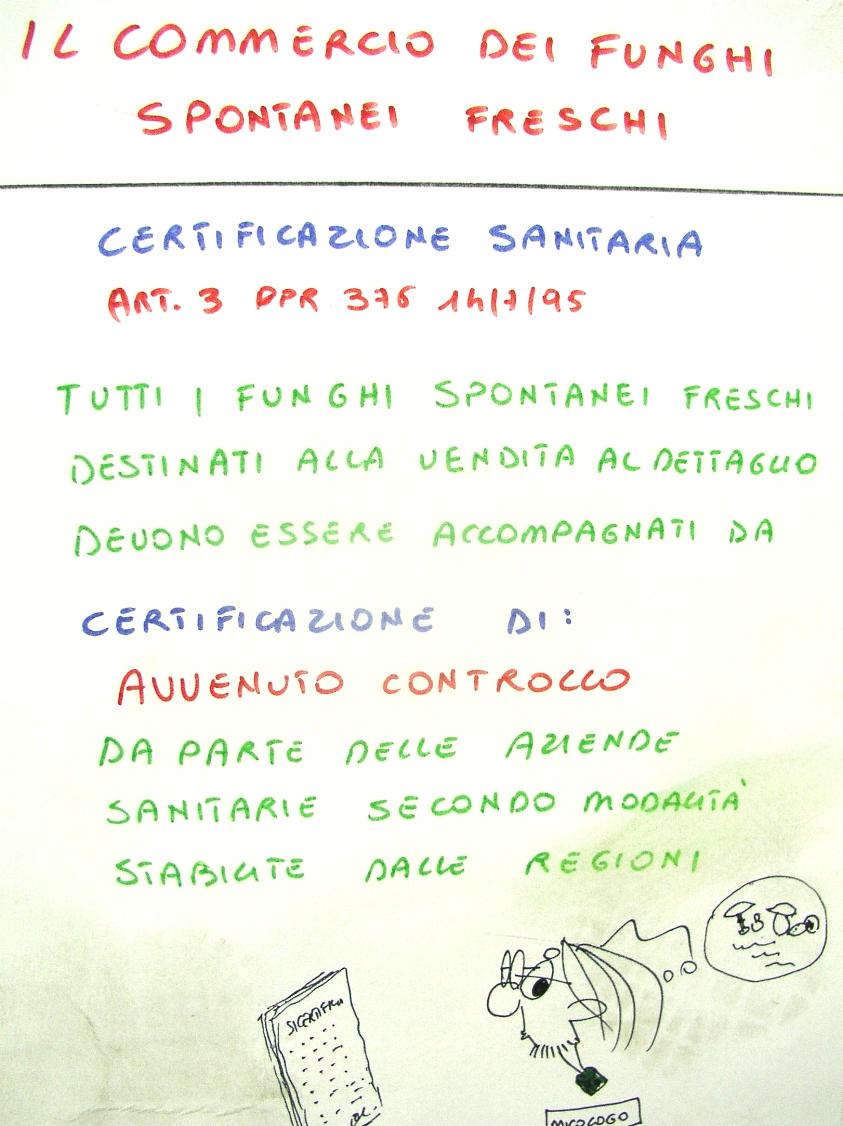 IL COMMERCIO DEI FUNGHI
SPONTANEI FRESCHI
CERTIFICAZIONE SANITARIA
ART. 3 DPR 376 14/7/95
TUTTI I FUNGHI SPONTANEI FRESCHI
DESTINATI ALLA VENDITA AL DETTAGLIO
DEVONO ESSERE ACCOMPAGNATI DA
CERTIFICAZIONE DI:
AVVENUTO CONTROLLO
DA PARTE DELLE AZIENDE
SANITARIE SECONDO MODALITÀ
STABILITE DALLE REGIONI
SI CERTIFICA
MICOLOGO